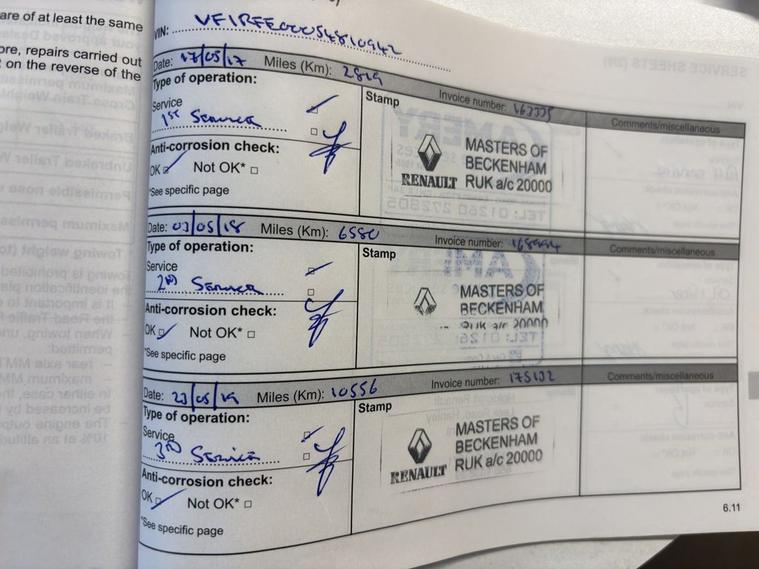 are of at least the same
ore, repairs carried out
t on the reverse of the
VIN: VF1RFE00054810942
Date: 17/05/17 Miles (Km): 2819 Invoice number:
Type of operation:
Stamp
Comments/miscellaneous
Service
1ST Service
Anti-corrosion check:
OK Not OK*
*See specific page
RENAULT
MASTERS OF
BECKENHAM
RUK a/c 20000
Date: 03/05/18 Miles (Km): 6580 Invoice number: 168994
Type of operation:
Stamp
Comments/miscellaneous
Service
2ND Service
Anti-corrosion check:
OK Not OK*
*See specific page
MASTERS OF
BECKENHAM
RUK a/c 20000
Date: 23/05/19 Miles (Km): 10556 Invoice number: 175132
Type of operation:
Stamp
Comments/miscellaneous
Service
3RD Service
Anti-corrosion check:
OK Not OK*
*See specific page
RENAULT
MASTERS OF
BECKENHAM
RUK a/c 20000
6.11